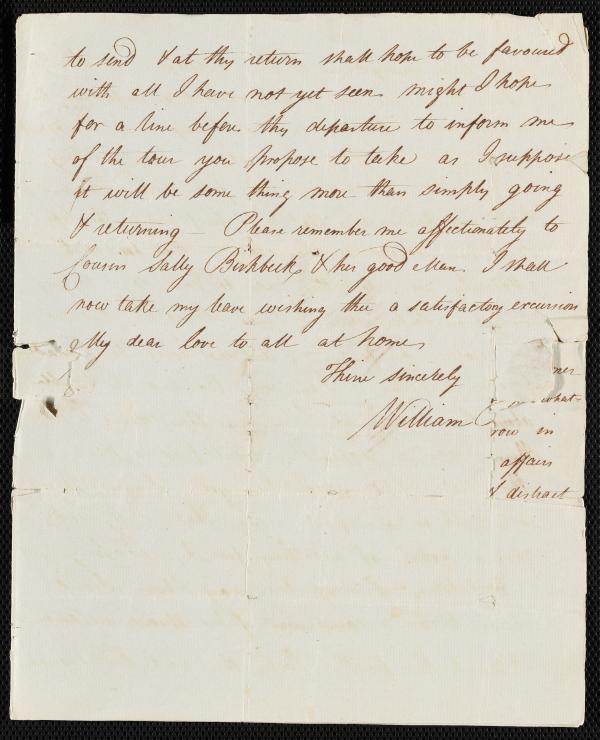 to send & at thy return shall hope to be favoured
with all I have not yet seen might I hope
for a line before thy departure to inform me
of the tour you propose to take as I suppose
it will be some thing more than simply going
& returning – Please remember me affectionately to
Cousin Sally Birkbeck & her good Man I shall
now take my leave wishing thee a satisfactory excursion
My dear love to all at home
Thine sincerely
William
ner
what-
row in
affairs
& distract